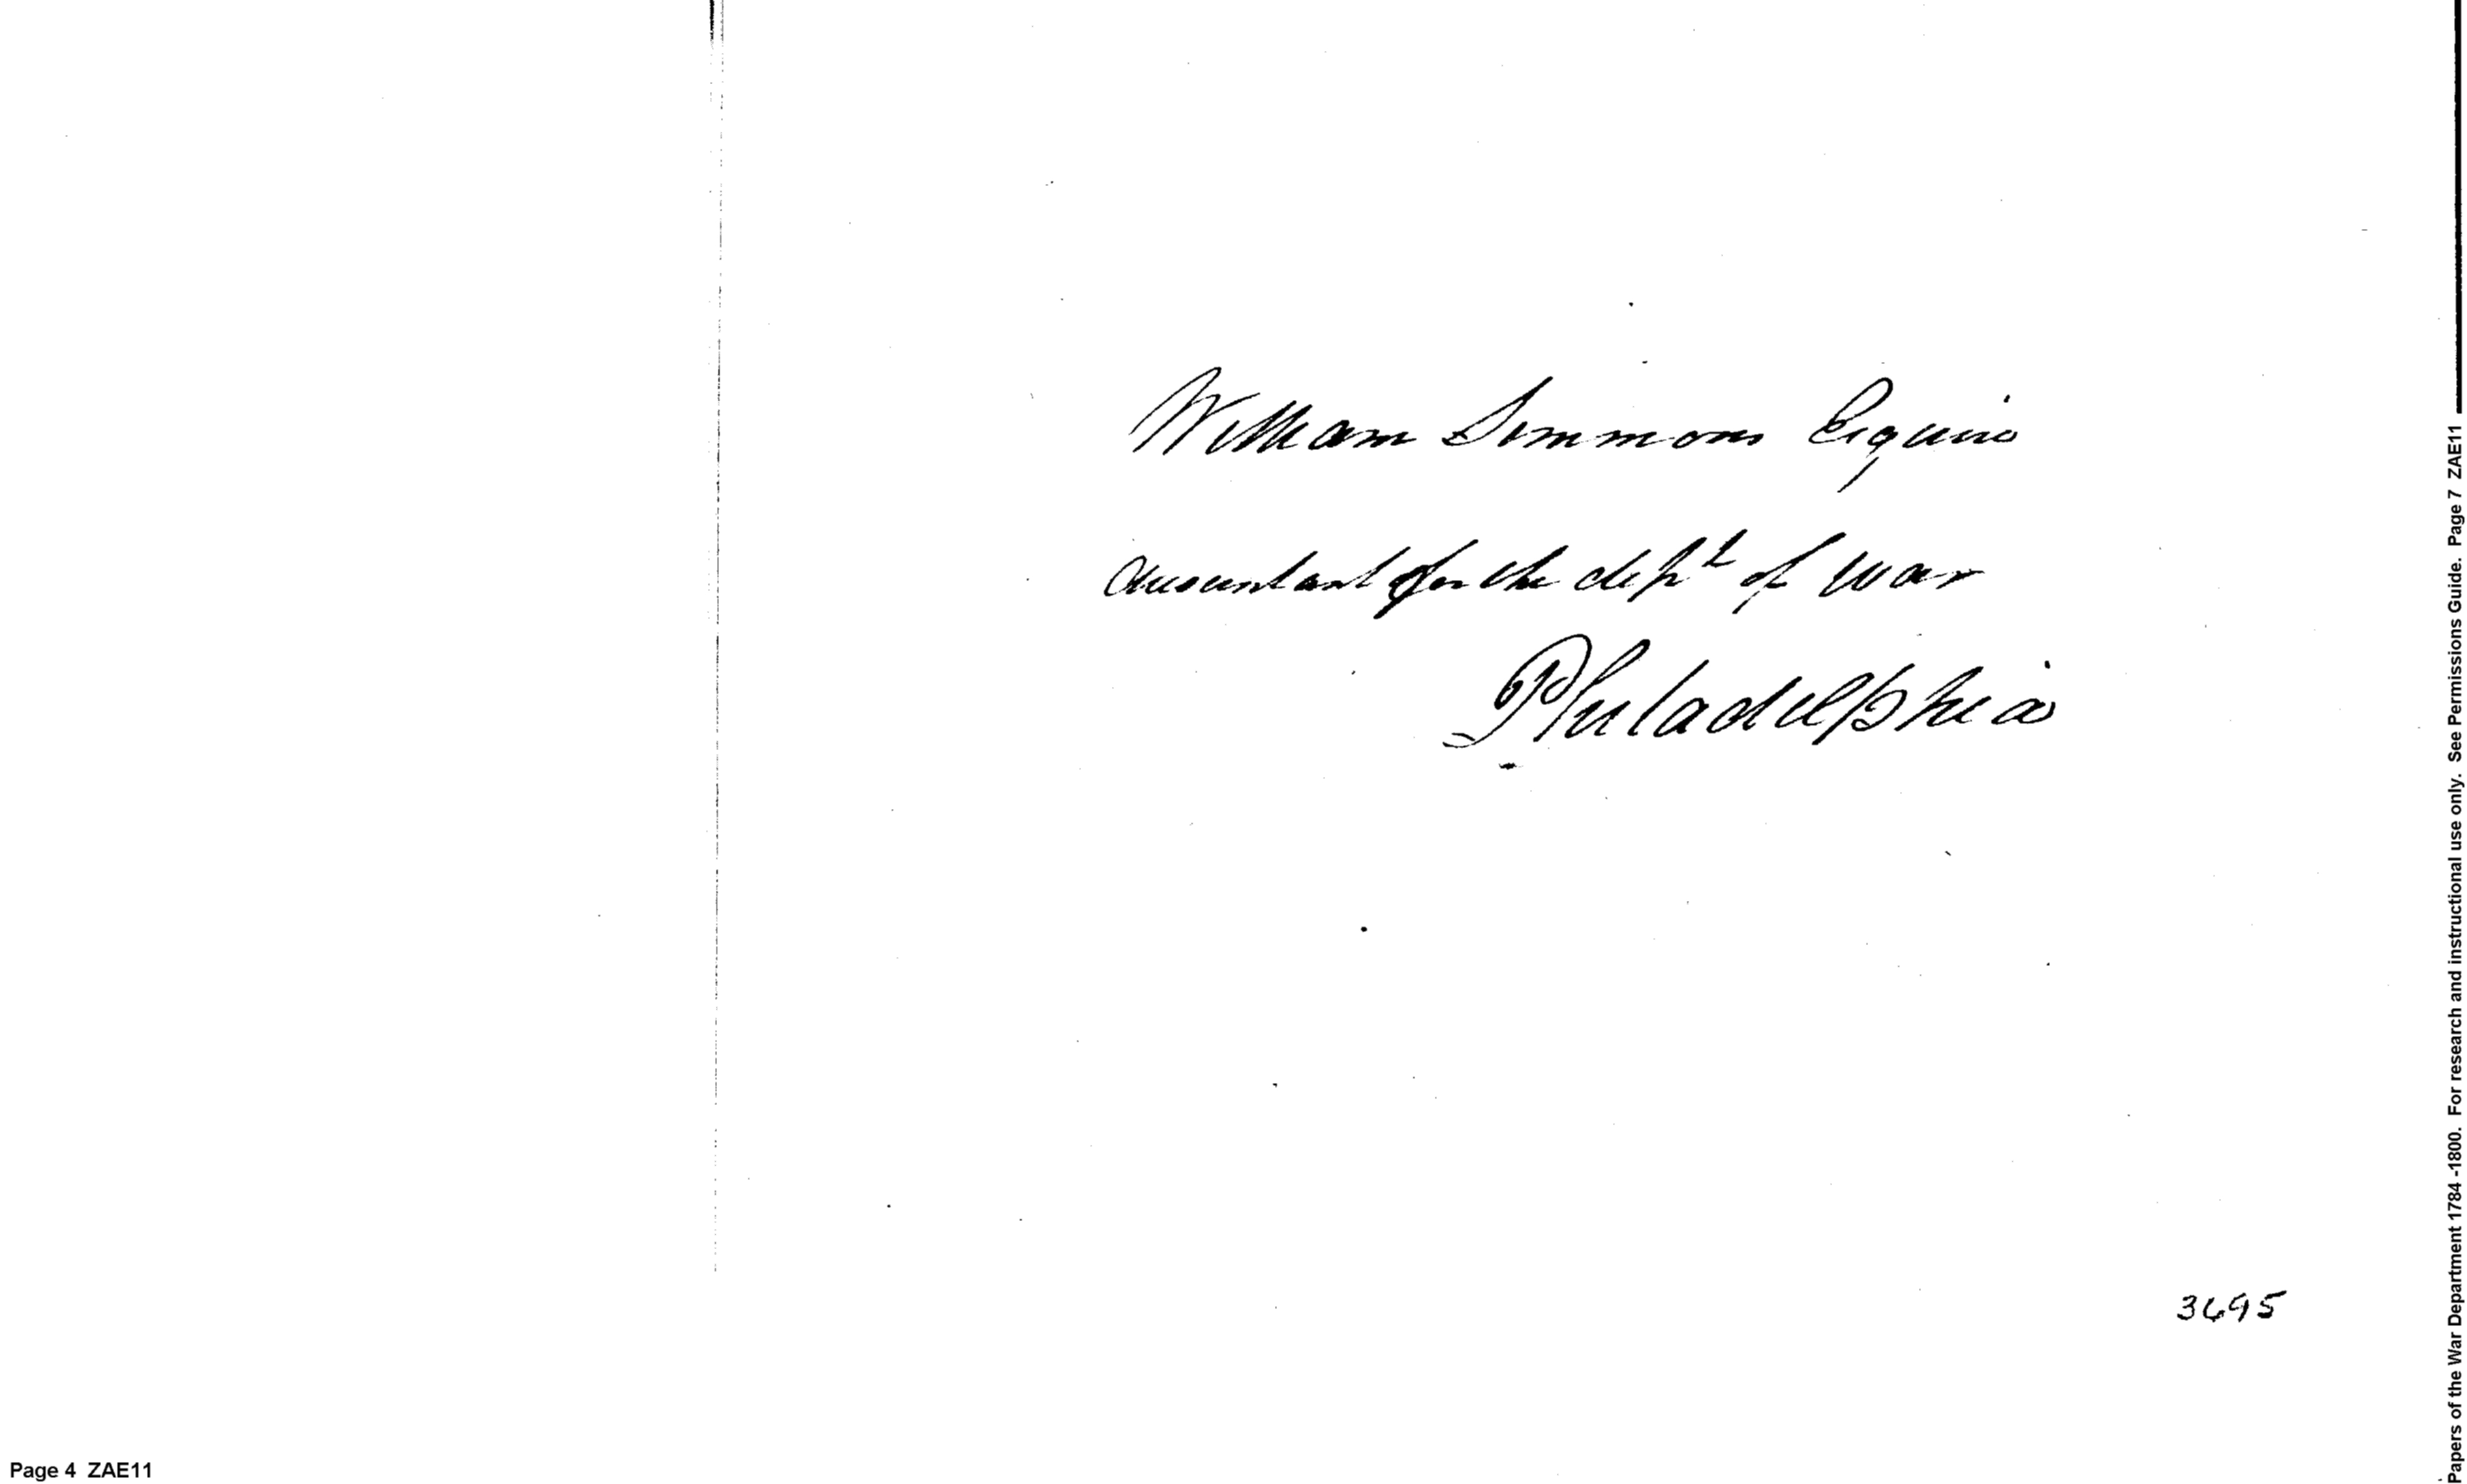 William Simmons Esquire
Accountant for the dept of War
Philadelphia
3695
Page 4 ZAE11
Papers of the War Department 1784 -1800. For research and instructional use only. See Permissions Guide. Page 7 ZAE11